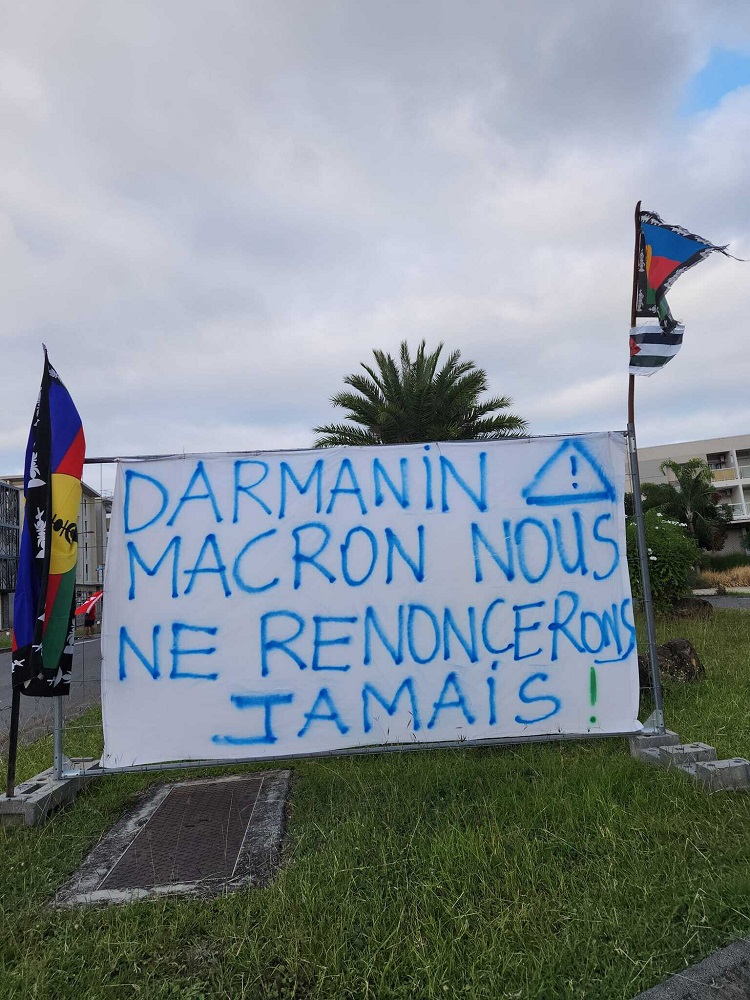 DARMANIN ⚠
MACRON NOUS
NE RENONCERONS
JAMAIS !